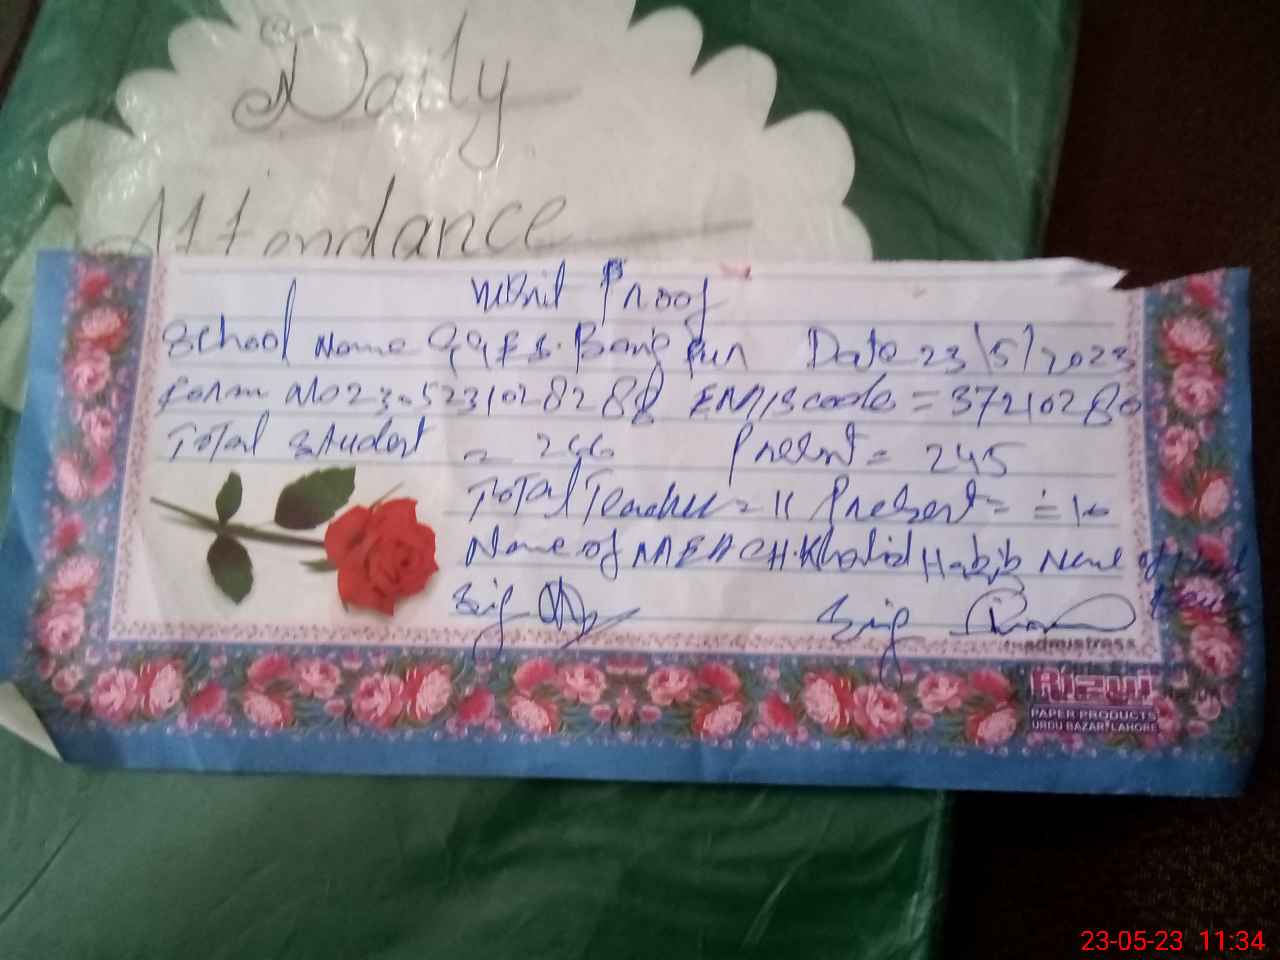 Daily
Attendance
Visit Proof
School Name GGES. Date 23/5/2023
Form No 23.5231028288 EMIS code = 37210280
Total Student = 266 Present = 245
Total Teacher = 11 Present = = 10
Name of MEA CH. Khalid Habib Name of Head
Sig Sig
headmistress
Rizwi
PAPER PRODUCTS
URDU BAZAR LAHORE
23-05-23 11:34